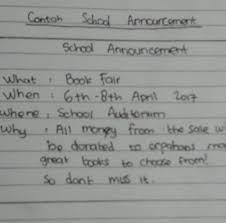 Contoh School Announcement
School Announcement
What : Book Fair
When : 6th - 8th April 2017
Where : School Auditorium
Why : All money from the sale w
be donated to orphans
great books to choose from!
So dont miss it.